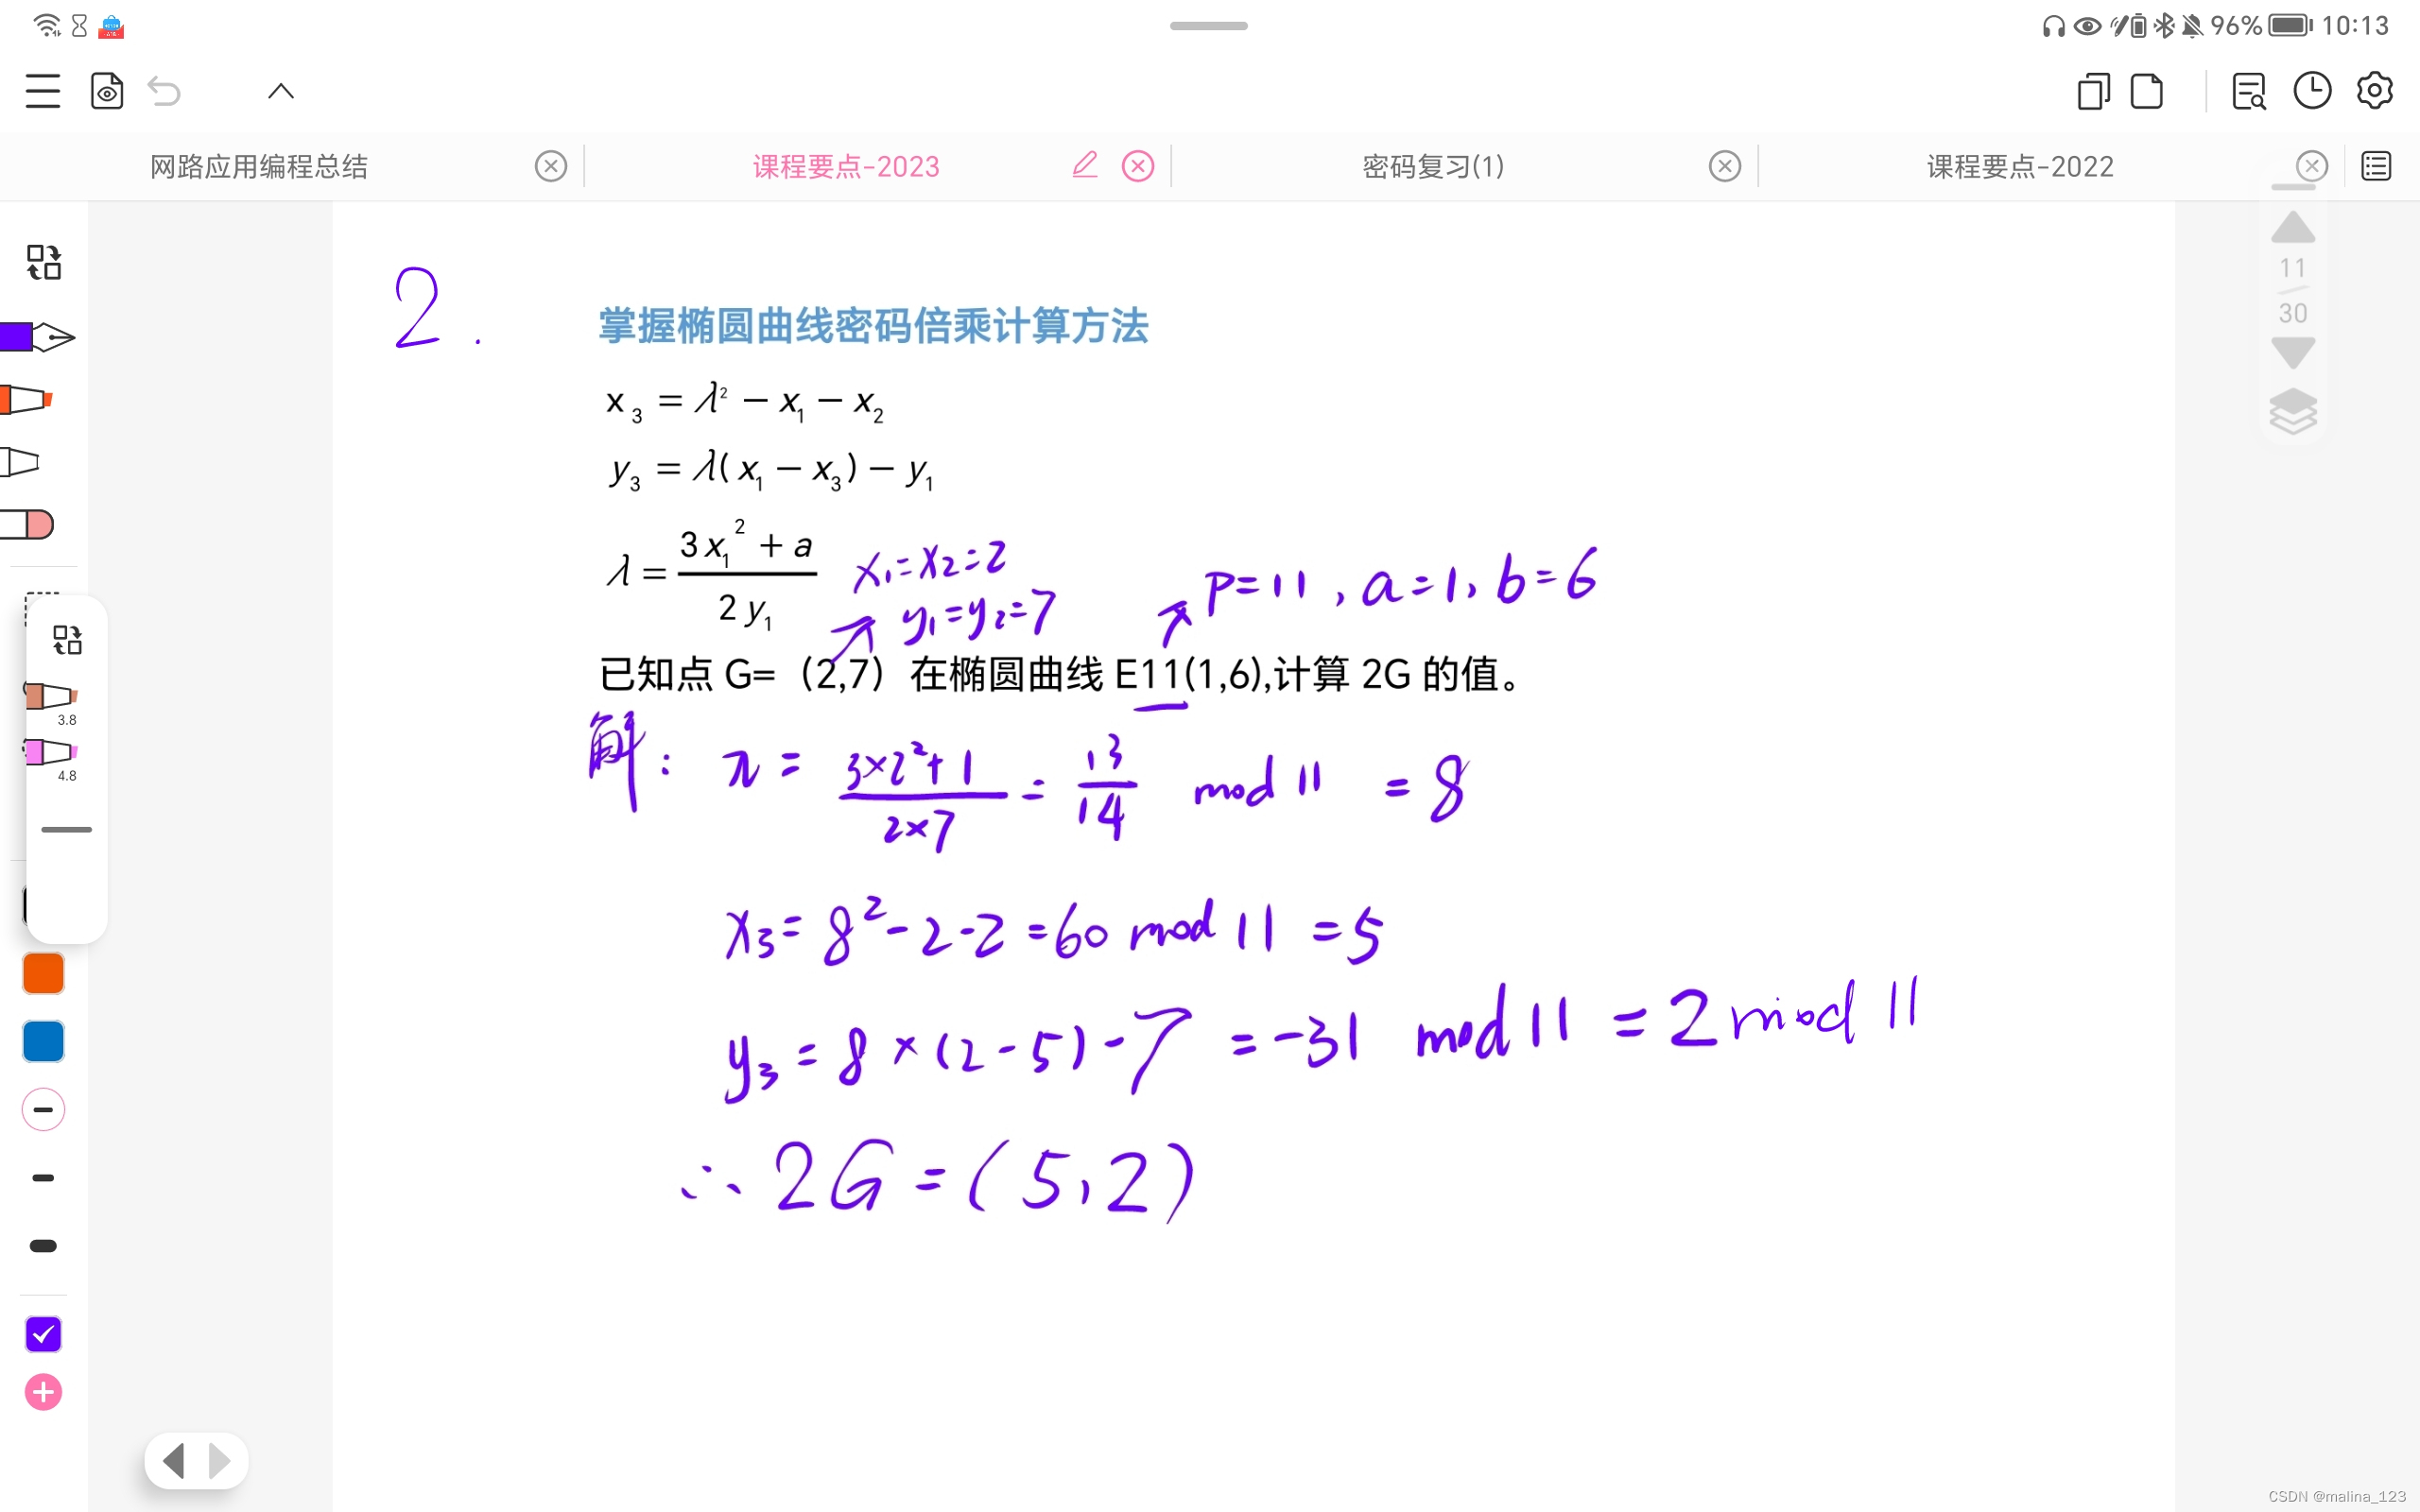 96% 10:13
网路应用编程总结 课程要点-2023 密码复习(1) 课程要点-2022
11
30
2.
掌握椭圆曲线密码倍乘计算方法
x₃ = λ² − x₁ − x₂
y₃ = λ(x₁ − x₃) − y₁
λ = (3x₁² + a) / (2y₁)
x₁=x₂=2
y₁=y₂=7
P=11, a=1, b=6
已知点 G=（2,7）在椭圆曲线 E11(1,6),计算 2G 的值。
解: λ = (3×2²+1)/(2×7) = 13/14 mod 11 = 8
x₃ = 8²-2-2 = 60 mod 11 = 5
y₃ = 8×(2-5)-7 = -31 mod 11 = 2 mod 11
∴ 2G = (5,2)
3.8
4.8
CSDN @malina_123